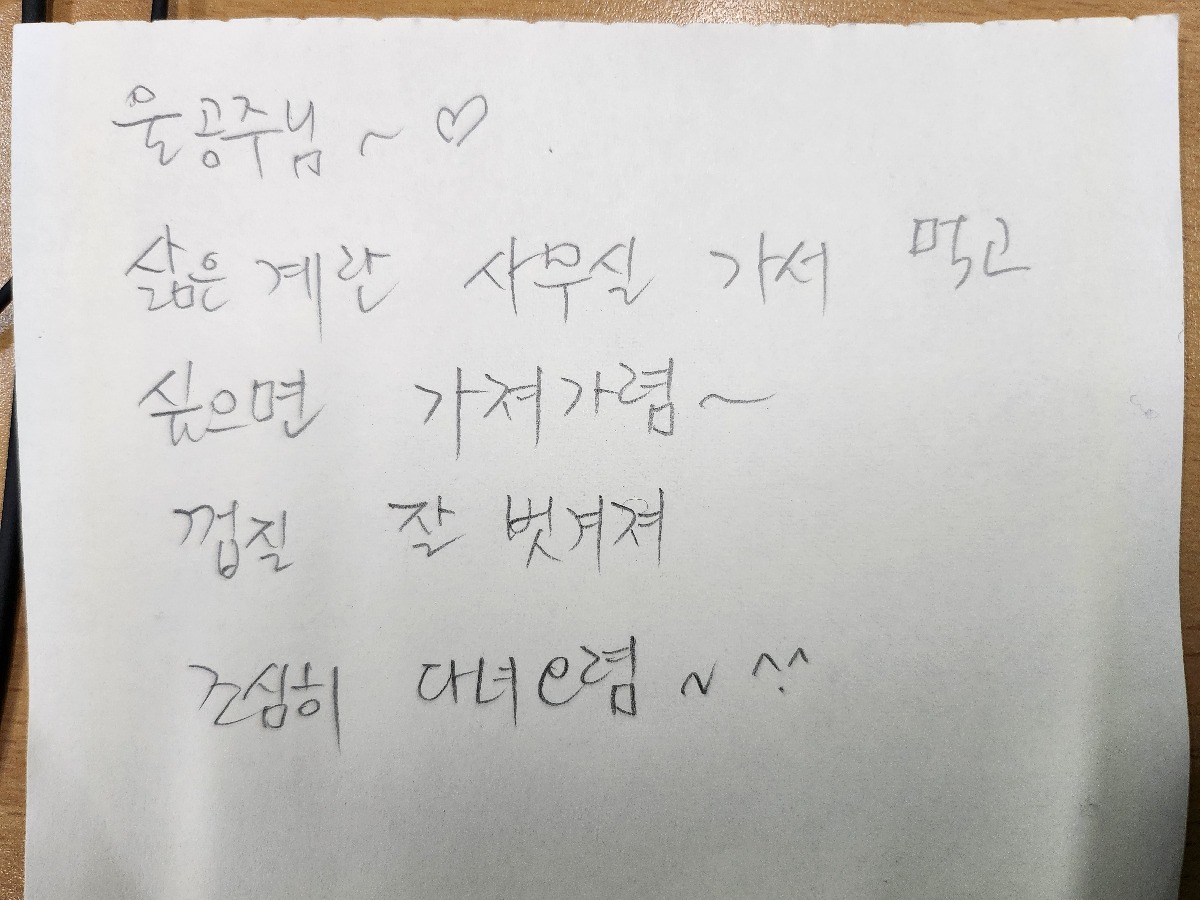 울공주님~♡
삶은계란 사무실 가서 먹고
싶으면 가져가렴~
껍질 잘 벗겨져
조심히 다녀오렴~^^